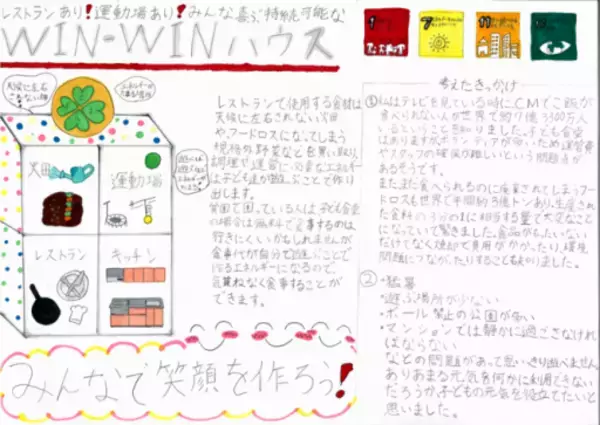 レストランあり!運動場あり!みんな喜ぶ持続可能な
WIN-WINハウス
天候に左右
されない畑
エネルギーが
畑
運動場
レストラン
キッチン
レストランで使用する食材は
天候に左右されない畑
や、フードロスになってしまう
規格外野菜などを買い取り、
調理や運営に必要なエネルギー
は子ども達が遊ぶことで作り
出します。
貧困で困っている人は、子ども食堂
の場合は無料で食事するのは
行きにくいかもしれませんが
食事代が自分で遊ぶことで
作るエネルギーになるので、
気兼ねなく食事することが
できます。
みんなで笑顔を作ろう!
考えたきっかけ
①私はテレビを見ている時に、CMでご飯が
食べられない人が世界で約7億3300万人
いるということを知りました。子ども食堂
はありますがボランティアが多いため運営費
やスタッフの確保が難しいという問題点が
あるそうです。
まだまだ食べられるのに廃棄されてしまうフー
ドロスも世界で年間約 億トンあり、生産され
た食料の3分の1に相当する量で大変なことに
なっていて驚きました。食品がもったいない
だけでなく焼却で費用がかかったり、環境
問題につながったりすることも知りました。
②・猛暑
・遊ぶ場所が少ない
・ボール禁止の公園が多い
・マンションでは静かに過ごさなけれ
ばならない
などの問題があって思いっきり遊べません。
ありあまる元気を何かに利用できない
だろうか、子どもの元気を役立てたいと
思いました。